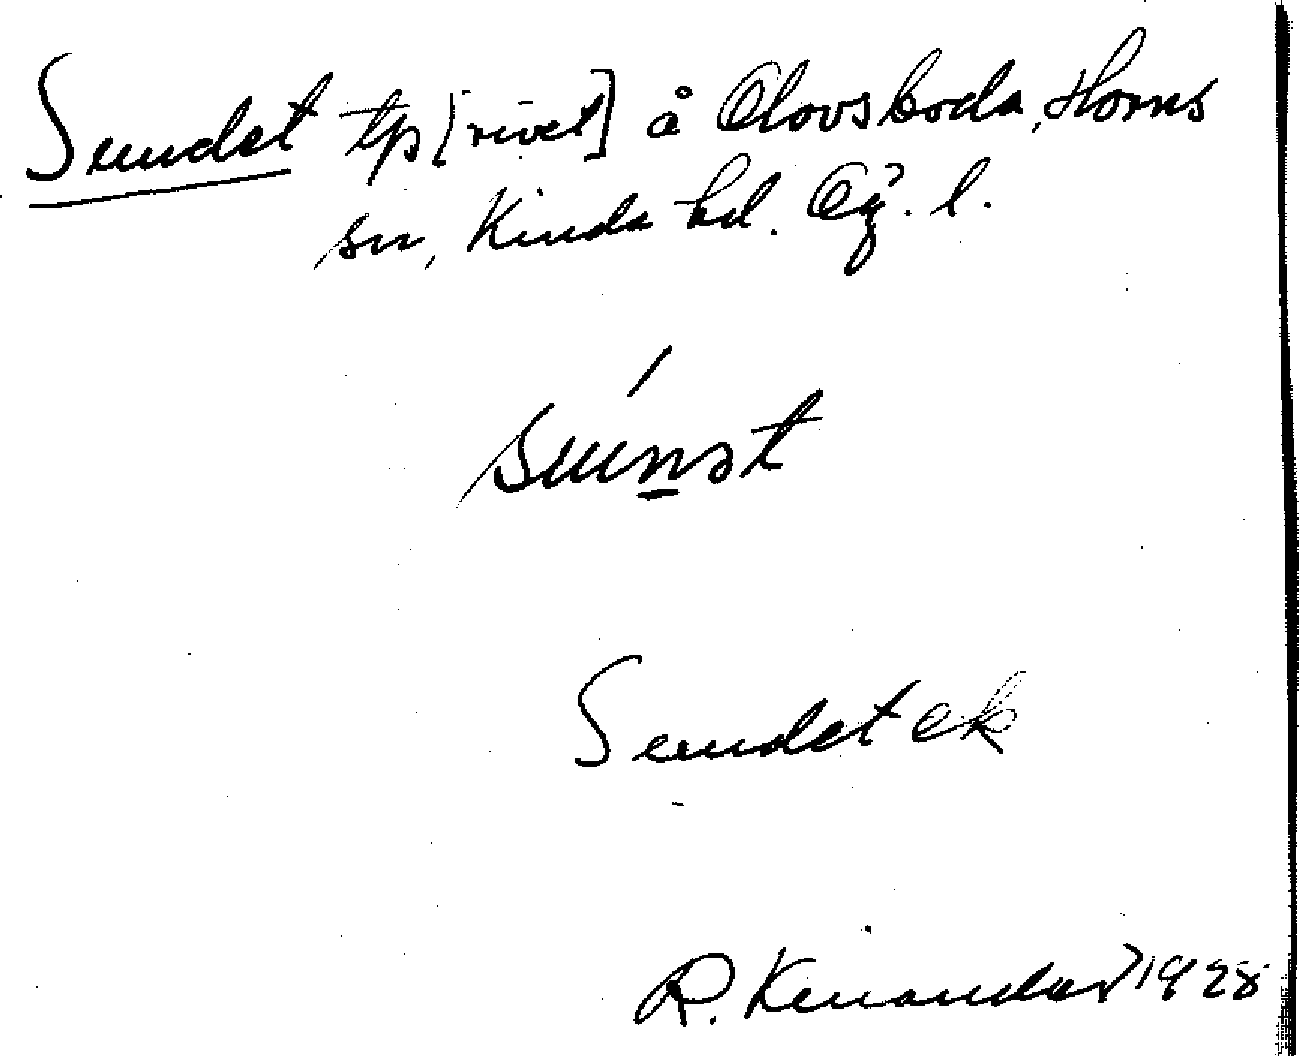 Sundet tp [rivet] å Olovsboda, Horns
sn, Kinda hd. Ög. l.
Sundet ek
R. Kenander 1928